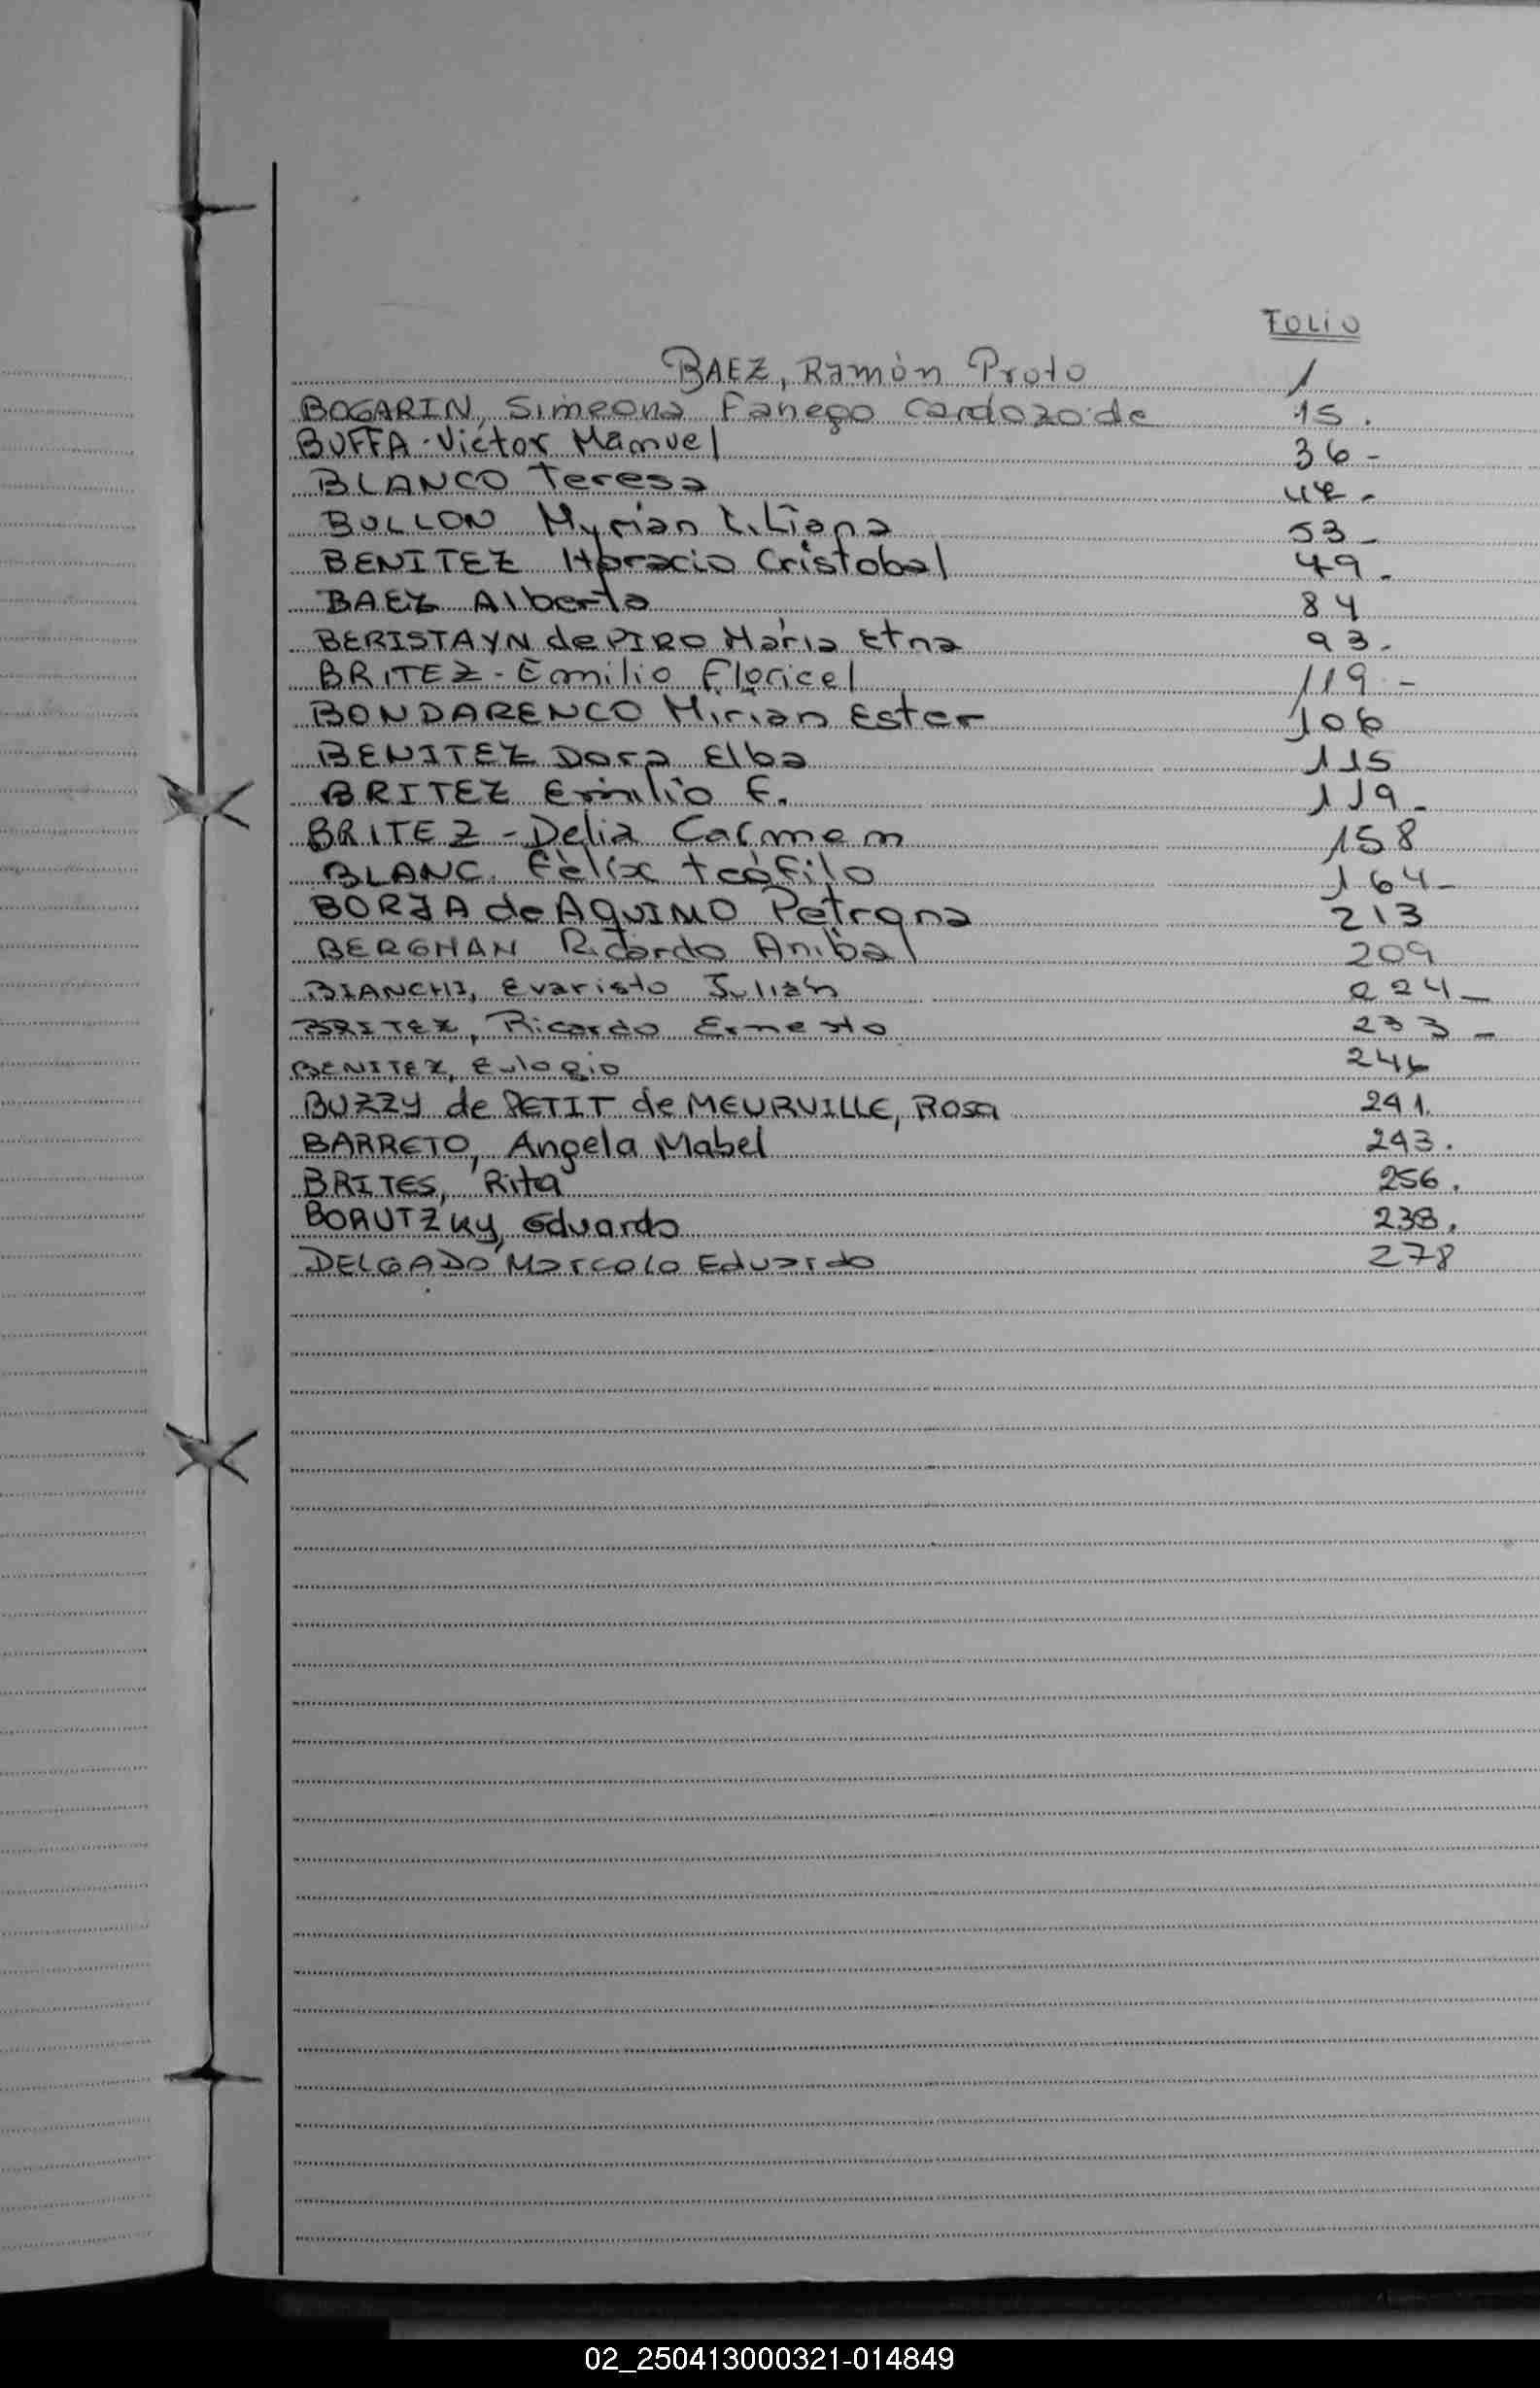 FOLIO
BAEZ, Ramón Proto 1
BOGARIN, Simeona Fanego Cardozo de 15.
BUFFA - Victor Manuel 36 -
BLANCO Teresa
BULLON Myrian Liliana 53 -
BENITEZ Horacio Cristobal 49.
BAEZ Alberto 84
BERISTAYN de PIRO María Etna 93.
BRITEZ - Emilio Floricel 119 -
BONDARENCO Mirian Ester 106
BENITEZ Dora Elba 115
BRITEZ Emilio F. 119.
BRITEZ - Delia Carmem 158
BLANC. Félix teófilo 164 -
BORJA de AQUINO Petrona 213
BERGMAN Ricardo Anibal 209
BIANCHI, Evaristo Julian 224 -
BRITEZ, Ricardo Ernesto 233 -
BENITEZ, Eulogio 246
BUZZY de PETIT de MEURVILLE, Rosa 241.
BARRETO, Angela Mabel 243.
BRITES, Rita 256.
BORUTZky, Eduardo 238.
DELGADO Marcelo Eduardo 278
02_250413000321-014849